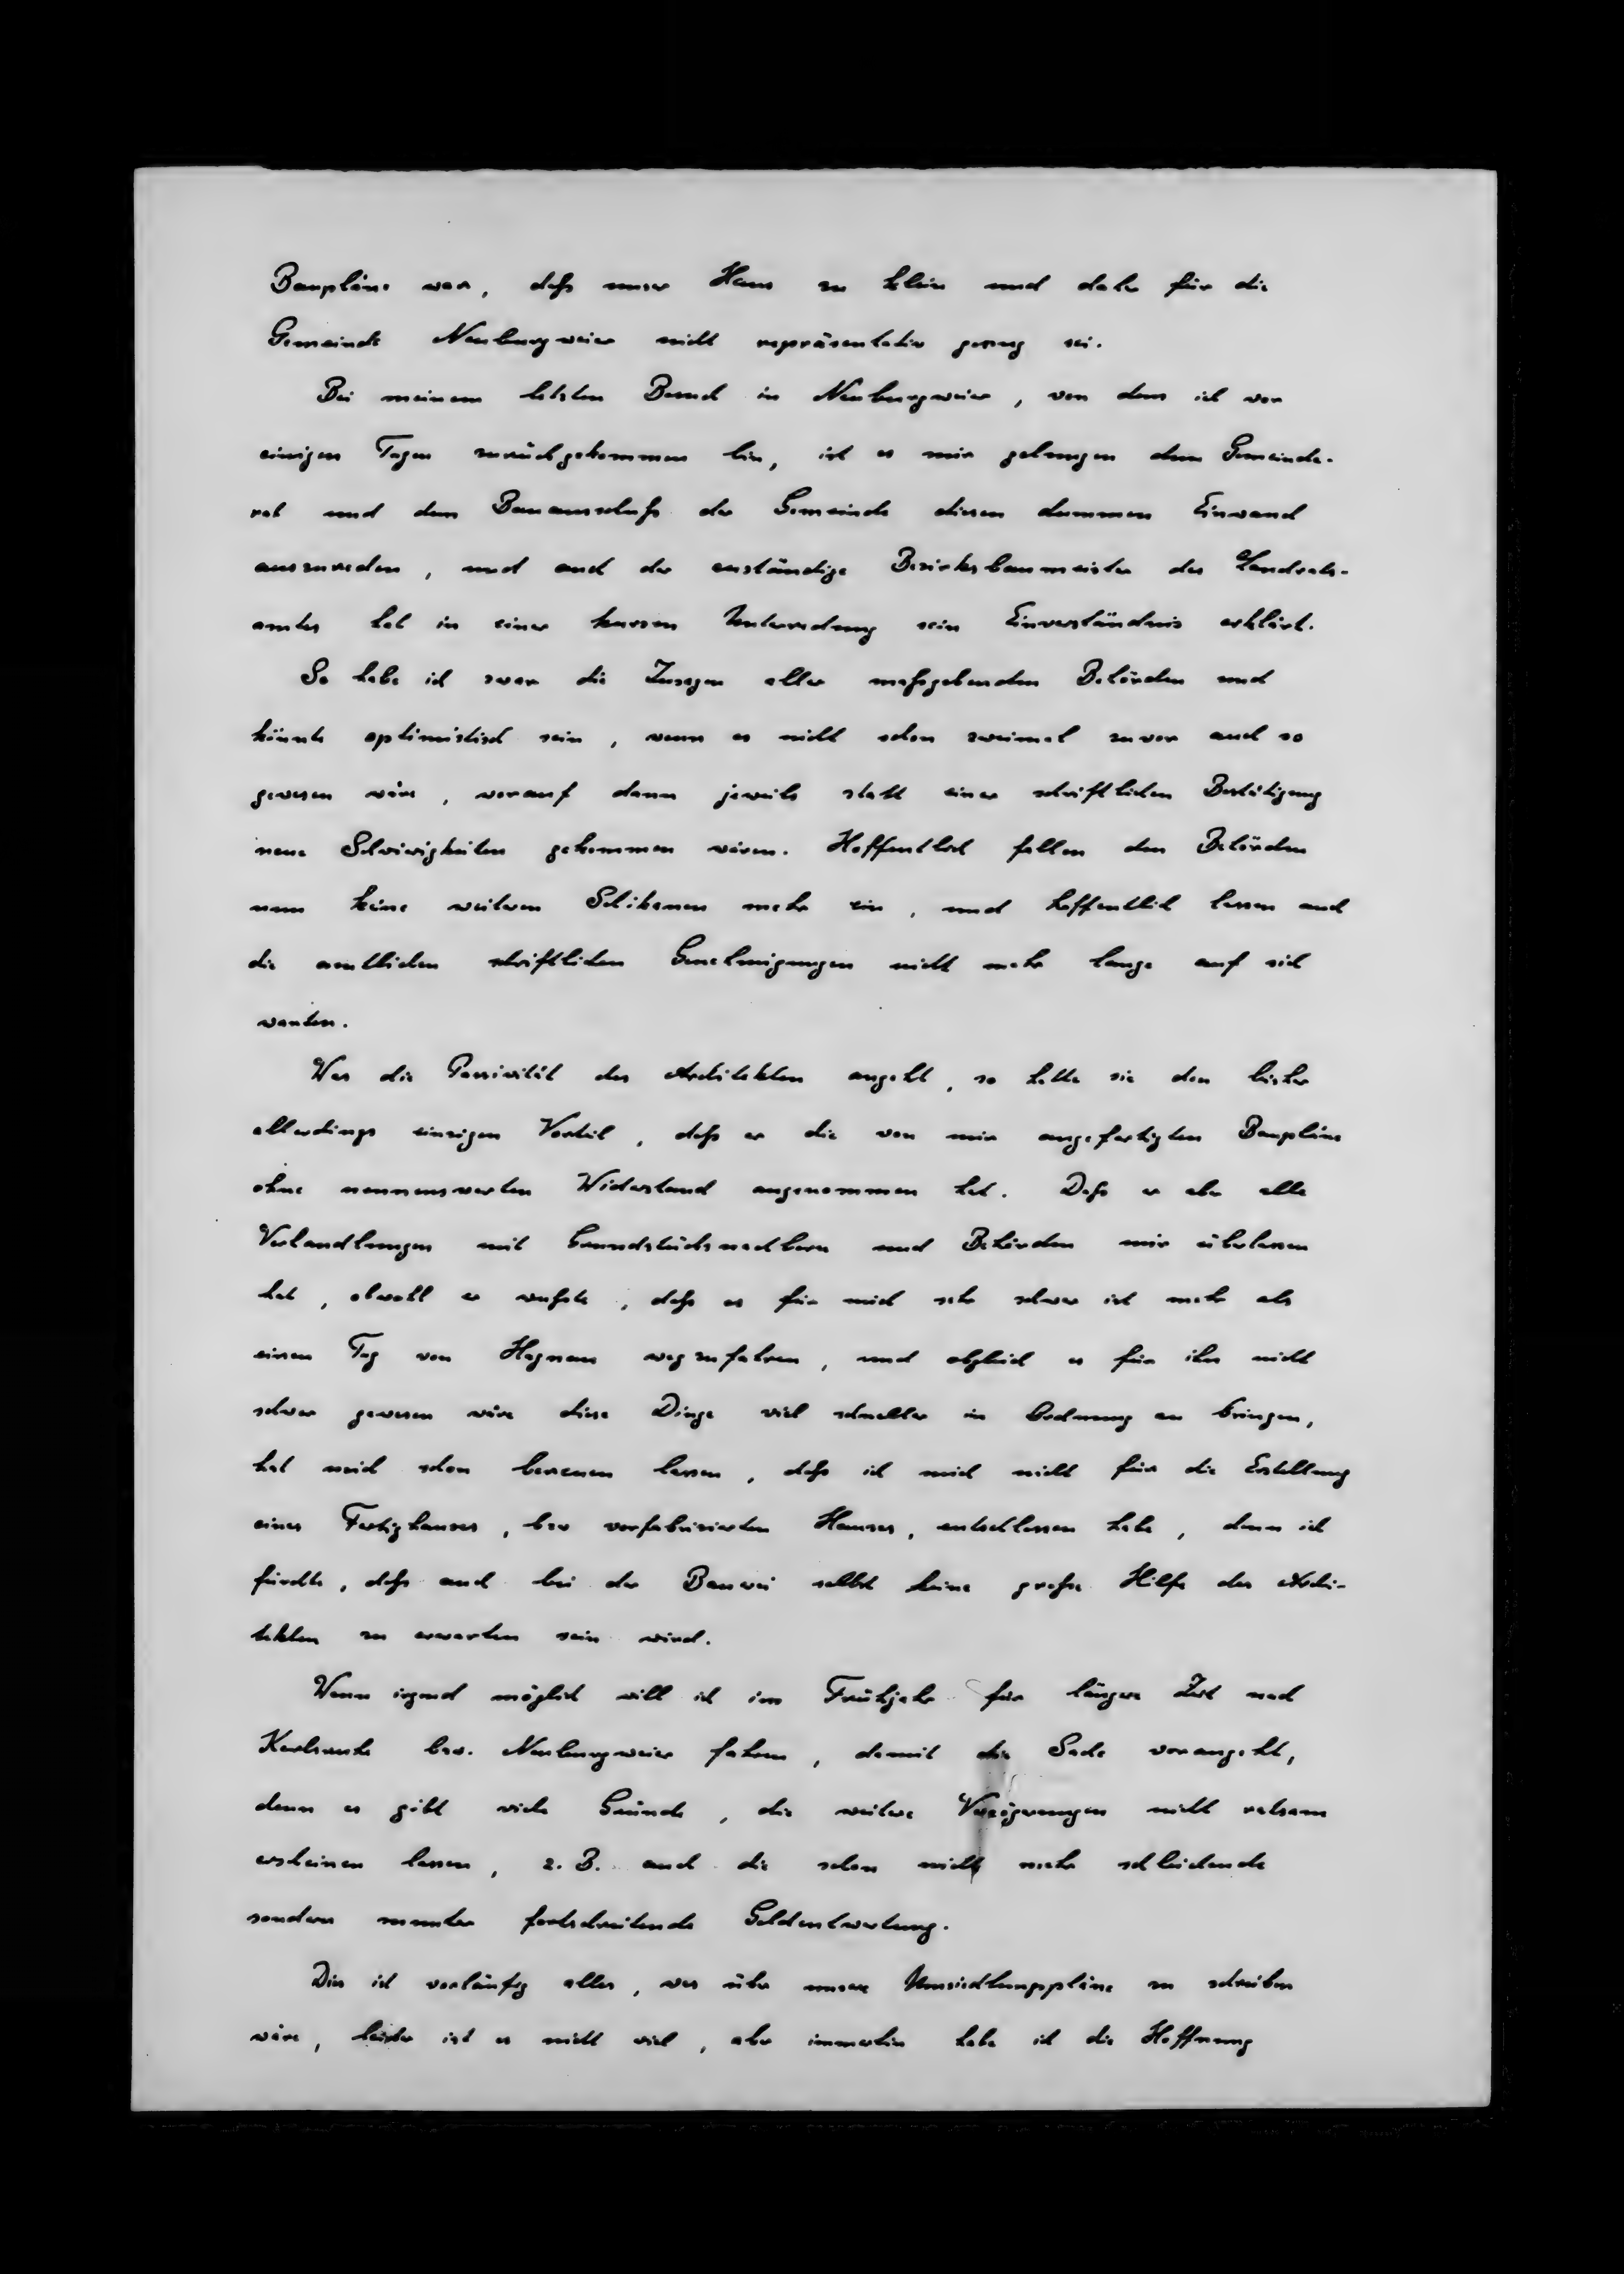 Baupläne war, daß unser Haus zu klein und daher für die
Gemeinde Neuburgweier nicht repräsentativ genug sei.
Bei meinem letzten Besuch in Neuburgweier, von dem ich vor
einigen Tagen zurückgekommen bin, ist es mir gelungen dem Gemeinde-
rat und dem Bauausschuß der Gemeinde diesen dummen Einwand
auszureden, und auch der zuständige Bezirksbaumeister des Landrats-
amtes hat in einer kurzen Unterredung sein Einverständnis erklärt.
So habe ich zwar die Zusagen aller maßgebenden Behörden und
könnte optimistisch sein, wenn es nicht schon zweimal zuvor auch so
gewesen wäre, worauf dann jeweils statt einer schriftlichen Bestätigung
neue Schwierigkeiten gekommen wären. Hoffentlich fallen den Behörden
nun keine weiteren Schikanen mehr ein, und hoffentlich lassen auch
die amtlichen schriftlichen Genehmigungen nicht mehr lange auf sich
warten.
Was die Passivität des Architekten angeht, so hatte sie den bisher
allerdings einzigen Vorteil, daß er die von mir angefertigten Baupläne
ohne nennenswerten Widerstand angenommen hat. Daß er aber alle
Verhandlungen mit Grundstücksnachbarn und Behörden mir überlassen
hat, obwohl er wußte, daß es für mich sehr schwer ist mehr als
einen Tag von Hagnau wegzufahren, und obgleich es für ihn nicht
schwer gewesen wäre diese Dinge viel schneller in Ordnung zu bringen,
hat mich schon bereuen lassen, daß ich mich nicht für die Erstellung
eines Fertighauses, bzw vorfabrizierten Hauses, entschlossen habe, denn ich
fürchte, daß auch bei der Bauerei selbst keine große Hilfe des Archi-
tekten zu erwarten sein wird.
Wenn irgend möglich will ich im Frühjahr für längere Zeit nach
Karlsruhe bzw. Neuburgweier fahren, damit die Sache vorangeht,
denn es gibt viele Gründe, die weitere Verzögerungen nicht ratsam
erscheinen lassen, z. B. auch die schon nicht mehr schleichende
sondern munter fortschreitende Geldentwertung.
Dies ist vorläufig alles, was über unsere Umsiedlungspläne zu schreiben
wäre, leider ist es nicht viel, aber immerhin habe ich die Hoffnung